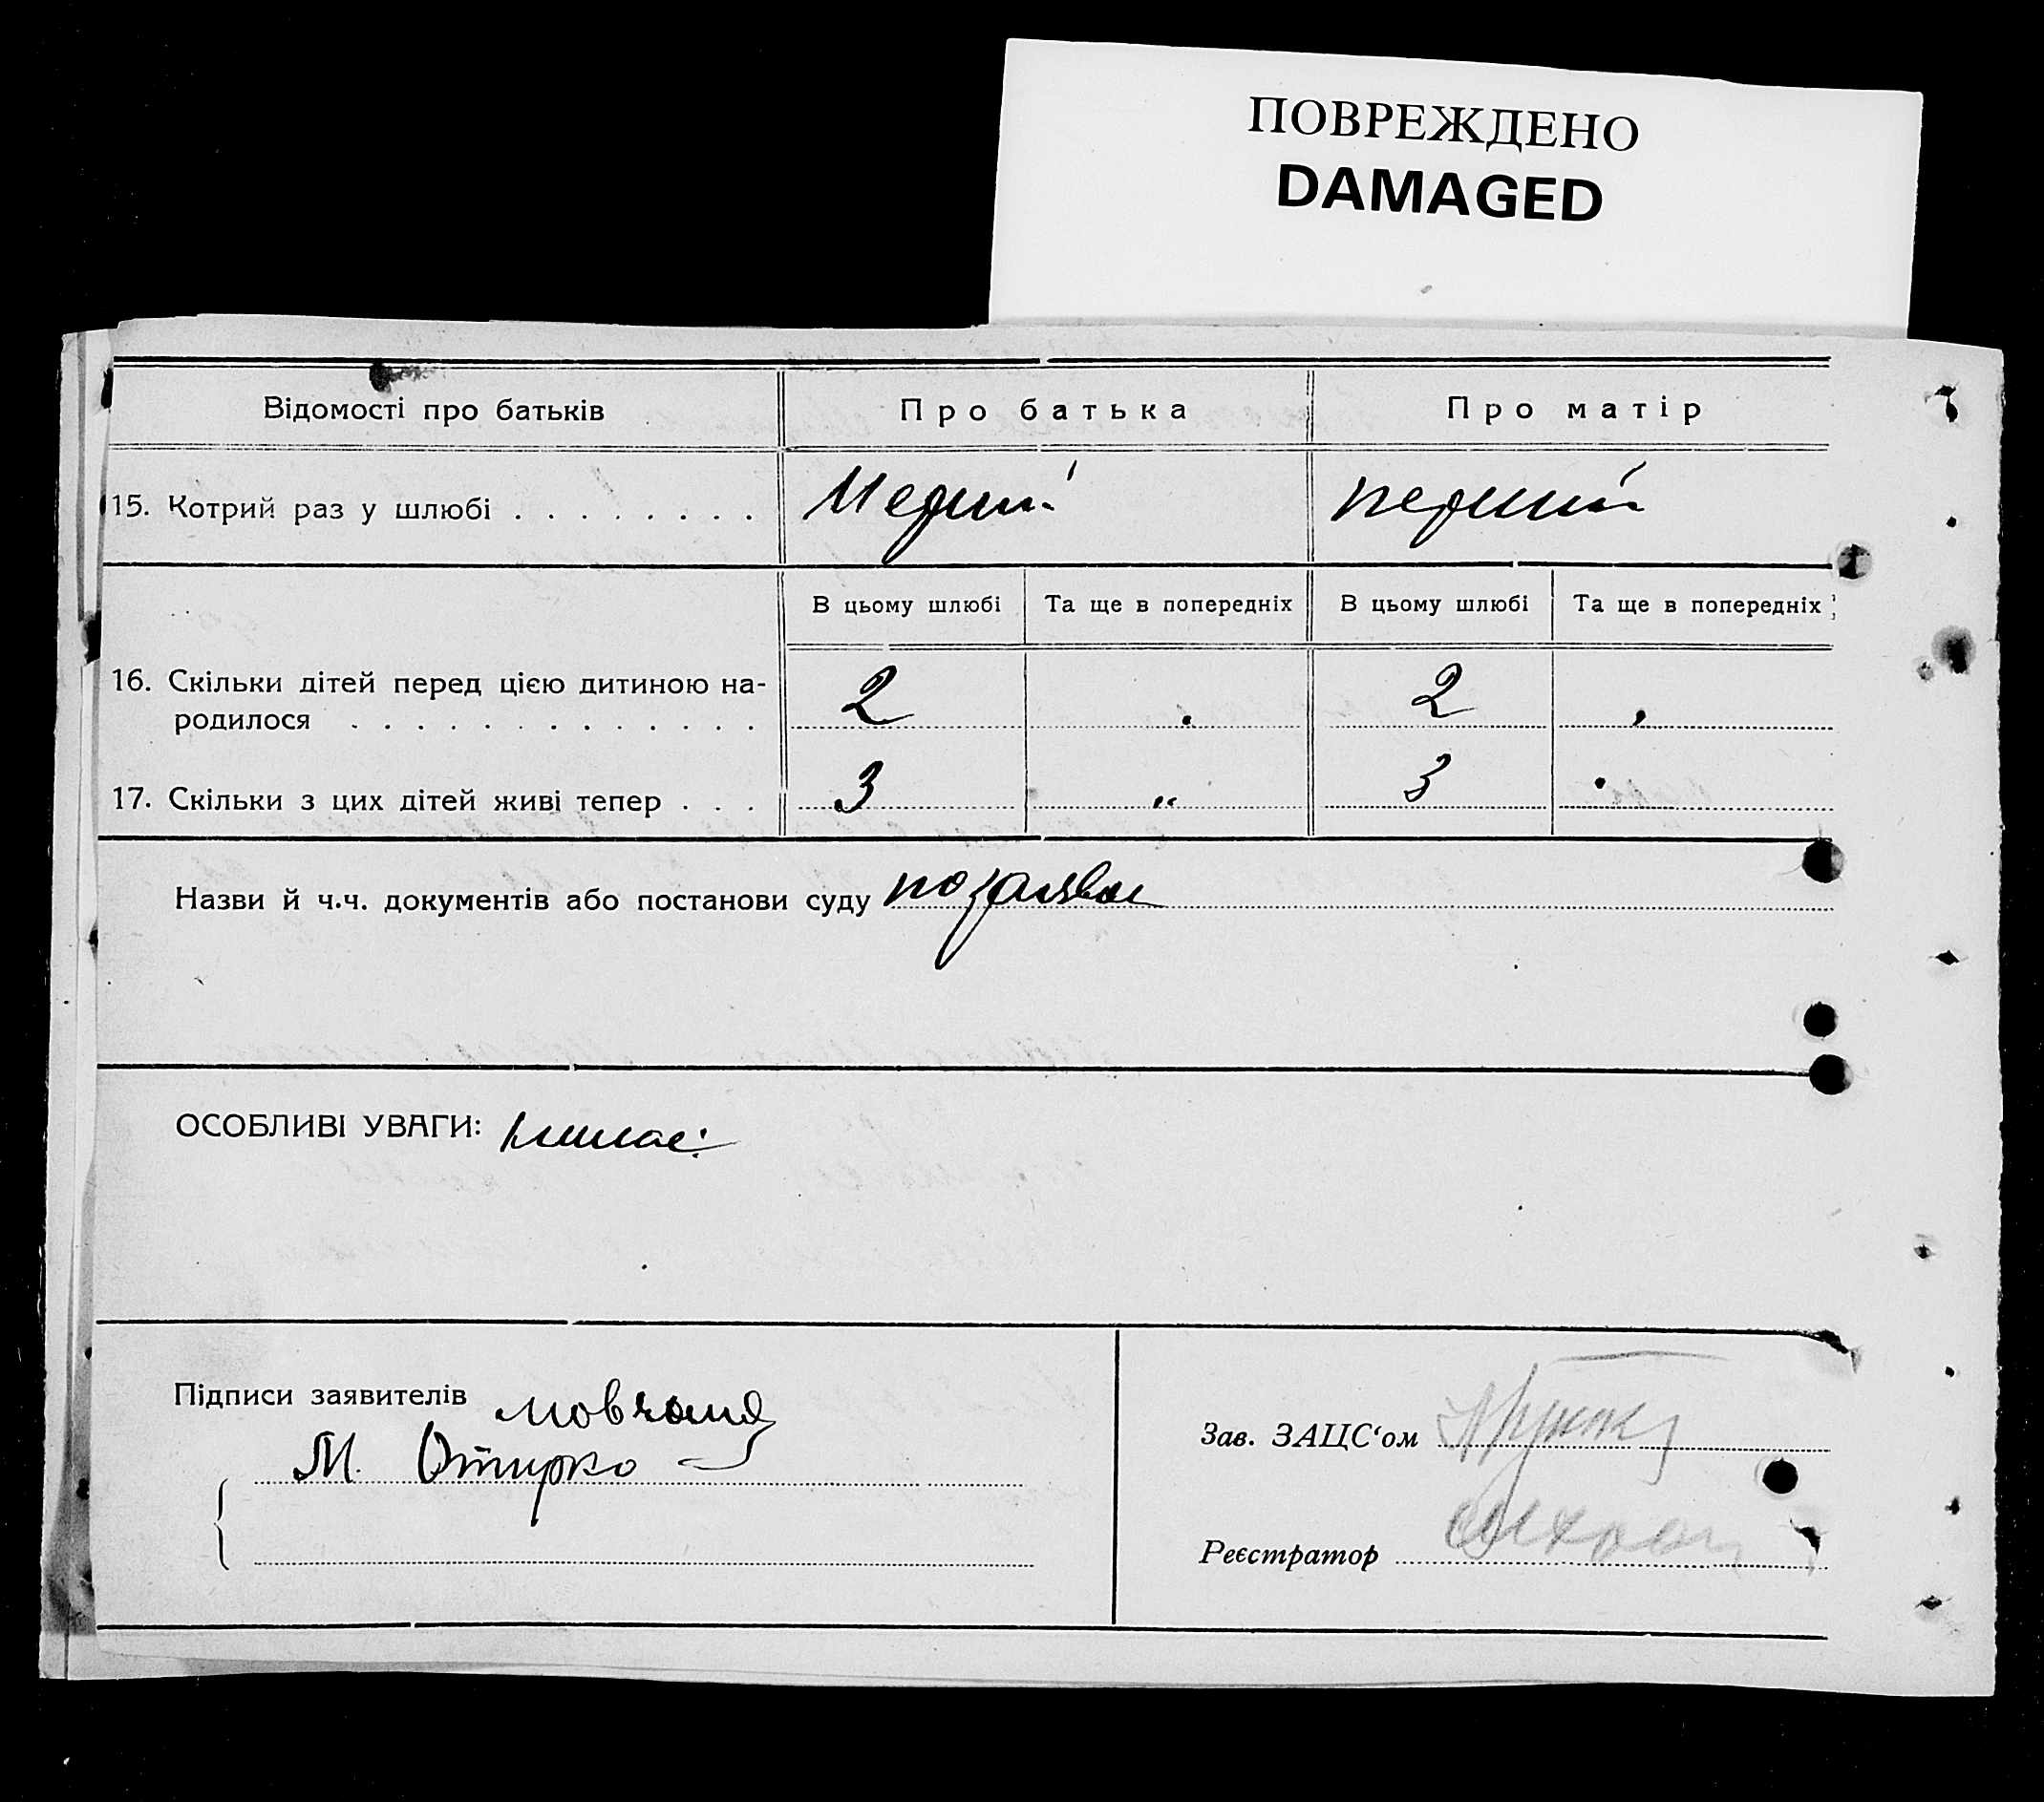 ПОВРЕЖДЕНО
DAMAGED
Відомості про батьків
Про батька
Про матір
15. Котрий раз у шлюбі . . . . . . . .
перший
В цьому шлюбі
Та ще в попередніх
В цьому шлюбі
Та ще в попередніх
16. Скільки дітей перед цією дитиною на-
родилося . . . . . . . . . . . . .
2
2
17. Скільки з цих дітей живі тепер . . .
3
„
3
Назви й ч.ч. документів або постанови суду по заявы
ОСОБЛИВІ УВАГИ: немає
Підписи заявителів
М.
Зав. ЗАЦС‘ом
Реєстратор